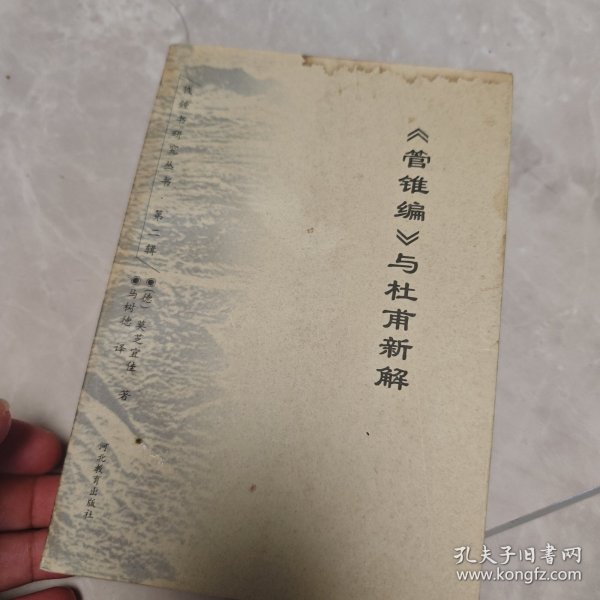 《管锥编》与杜甫新解
钱锺书研究丛书·第二辑
●(德)莫芝宜佳 著
●马树德 译
河北教育出版社
孔夫子旧书网
www.kongfz.com